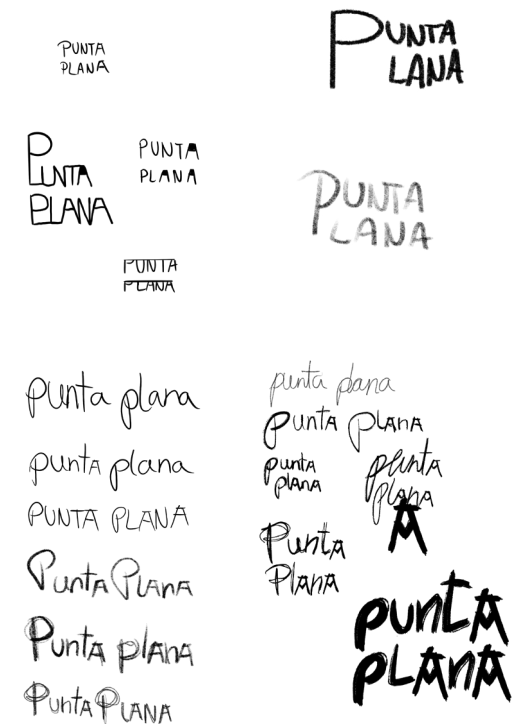 PUNTA
PLANA
PUNTA
LANA
PUNTA
PLANA
PUNTA
PLANA
PUNTA
LANA
PUNTA
PLANA
punta plana
punta plana
PUNTA PLANA
Punta Plana
Punta plana
Punta Plana
punta plana
Punta Plana
punta
plana
punta
plana
A
Punta
Plana
puntA
plAnA